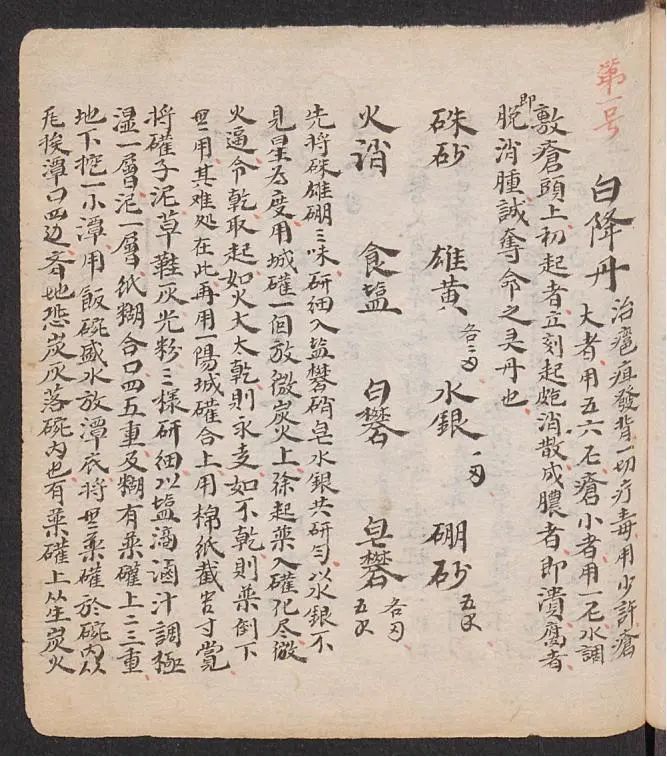 第一号
白降丹 治癰疽發背一切疔毒用少許瘡
大者用五六厘瘡小者用一厘水調
敷瘡頭上初起者立刻起皰消散成膿者即潰腐者
即脱消腫誠奪命之灵丹也
硃砂 雄黄各二刄 水銀一刄 硼砂五分
火硝 食塩 白礬 皂礬各刄五分
先將硃雄硼三味研細入塩礬硝皂水銀共研勻以水銀不
見星為度用城礶一個放微炭火上徐起藥入礶化尽微
火逼令乾取起如火大太乾則汞走如不乾則藥倒下
無用其难処在此再用一陽城礶合上用棉紙截寸寛
將礶子泥草鞋灰光粉三樣研細以塩滴滷汁調極
湿一層泥一層紙糊合口四五重及糊有藥礶上二三重
地下挖一小潭用飯碗盛水放潭底將無藥礶於碗内以
瓦挨潭口四边齊地恐炭灰落碗内也有藥礶上以生炭火